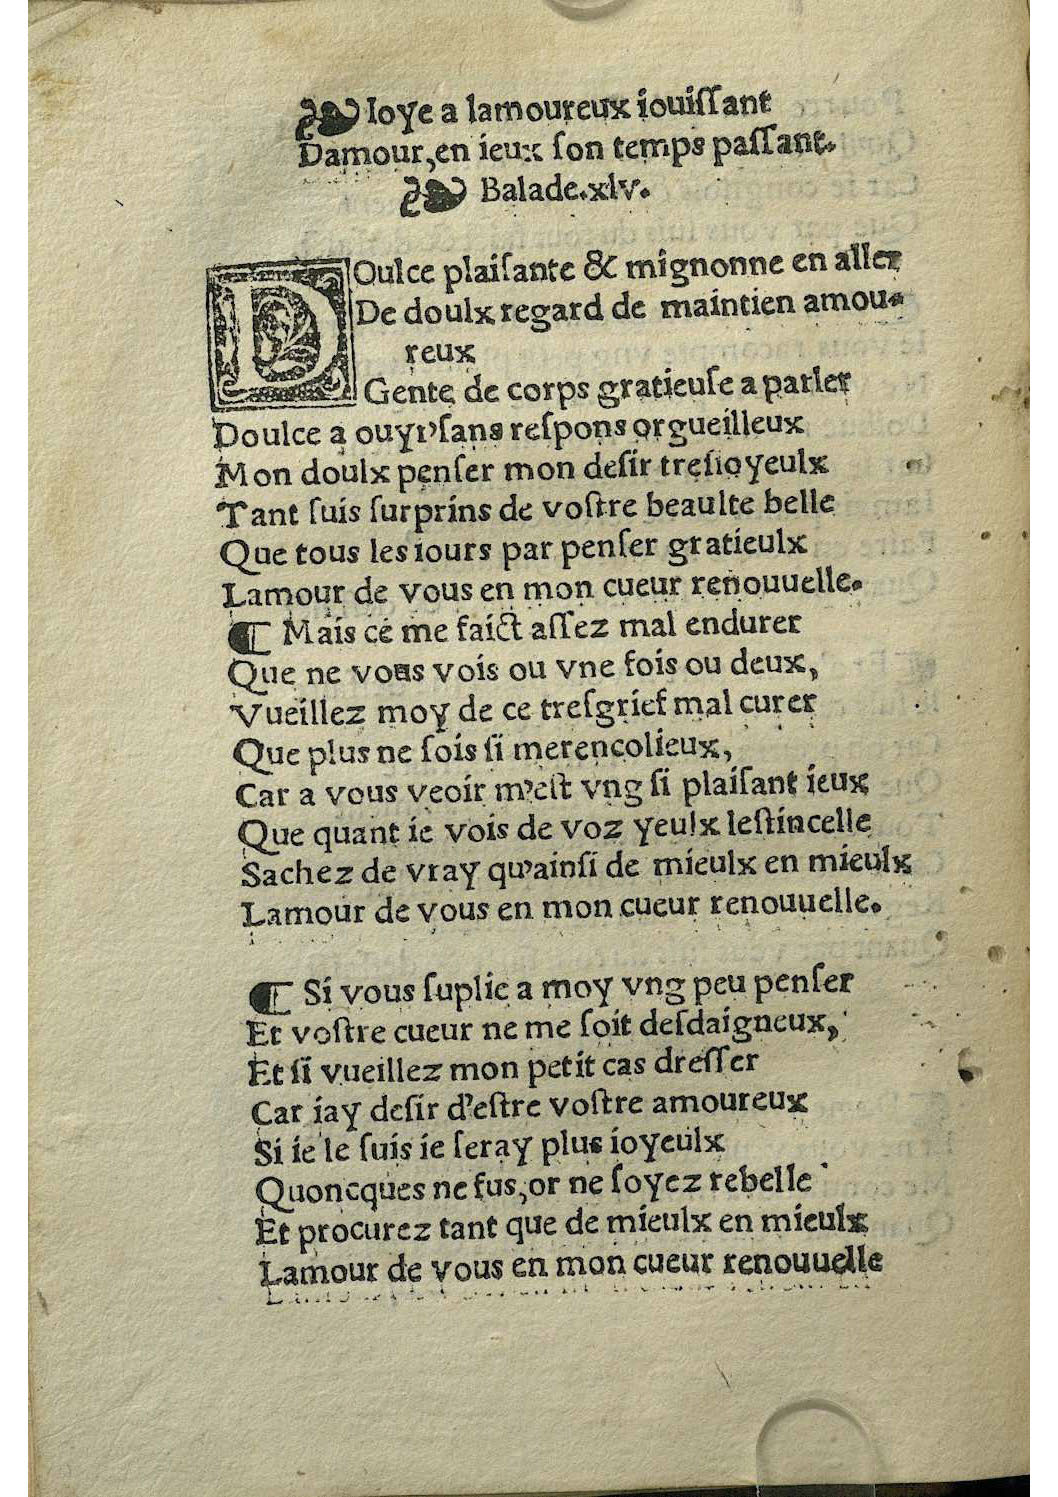 ❧ Ioye a lamoureux iouiſſant
Damour, en ieux ſon temps paſſant.
❧ Balade.xlv.
DOulce plaiſante & mignonne en aller
De doulx regard de maintien amou-
reux
Gente de corps gratieuſe a parler
Doulce a ouyr ſans reſpons orgueilleux
Mon doulx penſer mon deſir treſioyeulx
Tant ſuis ſurprins de voſtre beaulte belle
Que tous les iours par penſer gratieulx
Lamour de vous en mon cueur renouuelle.
¶ Mais ce me faict aſſez mal endurer
Que ne vous vois ou vne fois ou deux,
Vueillez moy de ce treſgrief mal curer
Que plus ne ſois ſi merencolieux,
Car a vous veoir m'eſt vng ſi plaiſant ieux
Que quant ie vois de voz yeulx leſtincelle
Sachez de vray qu'ainſi de mieulx en mieulx
Lamour de vous en mon cueur renouuelle.
¶ Si vous ſuplie a moy vng peu penſer
Et voſtre cueur ne me ſoit deſdaigneux,
Et ſi vueillez mon petit cas dreſſer
Car iay deſir d'eſtre voſtre amoureux
Si ie le ſuis ie ſeray plus ioyeulx
Quoncques ne fus, or ne ſoyez rebelle
Et procurez tant que de mieulx en mieulx
Lamour de vous en mon cueur renouuelle